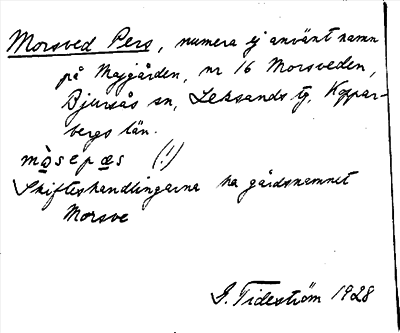 Morsved Pers, numera ej använt namn
på Majgården, nr 16 Morsveden,
Bjursås sn, Leksands tg, Koppar-
bergs län.
mòsepæs (!)
Skifteshandlingarna ha gårdsnamnet
Morsve
G. Tideström 1928